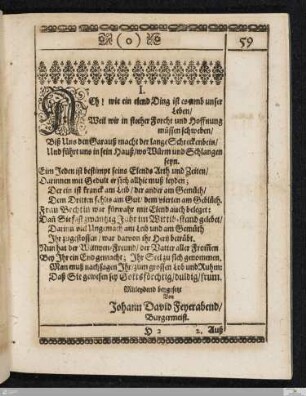 (0)
59
I.
ACh! wie ein elend Ding ist es umb unser
Leben/
Weil wir in steter Forcht und Hoffnung
müssen schweben/
Biß Uns den Garauß macht der lange Schreckenbein/
Und führt uns in sein Hauß/wo Würm und Schlangen
seyn.
Eim Jeden ist bestimpt seins Elends Arth und Zeiten/
Darinnen mit Gedult er sich allhie muß leyden;
Der ein ist kranck am Leib/ der ander am Gemüth/
Dem Dritten fehlts am Gut/ dem vierten am Geblüth.
Frau Bechtlin war fürwahr mit Elend auch beleget;
Daß Sie fast zwantzig Jahr im Wittib-stand gelebet/
Darinn viel Ungemach am Leib und am Gemüth
Ihr zugestossen/ war darvon ihr Hertz betrübt.
Nun hat der Wittwen-Freund/ der Vatter aller Frommen
Bey Ihr ein End gemacht; Ihr Seel zu sich genommen.
Man muß nachsagen Ihr/ zum grossen Lob und Ruhm:
Daß Sie gewesen sey Gottsförchtig/duldig/frum.
Mitleydend beygesetzt
Von
Johann David Feyerabend/
Burgermeist.
H 2
2. Auß